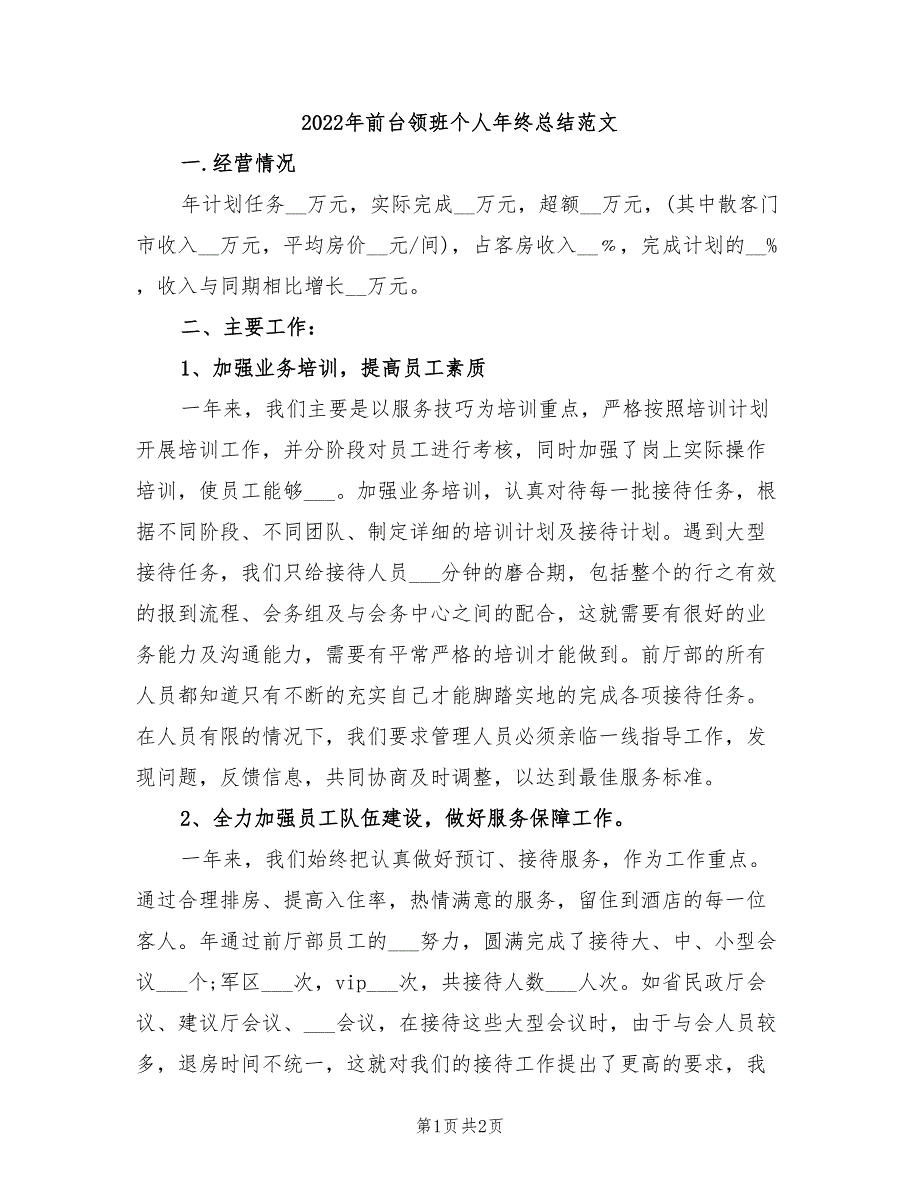 2022年前台领班个人年终总结范文
一.经营情况
年计划任务__万元，实际完成__万元，超额__万元，(其中散客门
市收入__万元，平均房价__元/间)，占客房收入__﹪，完成计划的__%
，收入与同期相比增长__万元。
二、主要工作：
1、加强业务培训，提高员工素质
一年来，我们主要是以服务技巧为培训重点，严格按照培训计划
开展培训工作，并分阶段对员工进行考核，同时加强了岗上实际操作
培训，使员工能够___。加强业务培训，认真对待每一批接待任务，根
据不同阶段、不同团队、制定详细的培训计划及接待计划。遇到大型
接待任务，我们只给接待人员___分钟的磨合期，包括整个的行之有效
的报到流程、会务组及与会务中心之间的配合，这就需要有很好的业
务能力及沟通能力，需要有平常严格的培训才能做到。前厅部的所有
人员都知道只有不断的充实自己才能脚踏实地的完成各项接待任务。
在人员有限的情况下，我们要求管理人员必须亲临一线指导工作，发
现问题，反馈信息，共同协商及时调整，以达到最佳服务标准。
2、全力加强员工队伍建设，做好服务保障工作。
一年来，我们始终把认真做好预订、接待服务，作为工作重点。
通过合理排房、提高入住率，热情满意的服务，留住到酒店的每一位
客人。年通过前厅部员工的___努力，圆满完成了接待大、中、小型会
议___个;军区___次，vip___次，共接待人数___人次。如省民政厅会
议、建议厅会议、___会议，在接待这些大型会议时，由于与会人员较
多，退房时间不统一，这就对我们的接待工作提出了更高的要求，我
第1页共2页